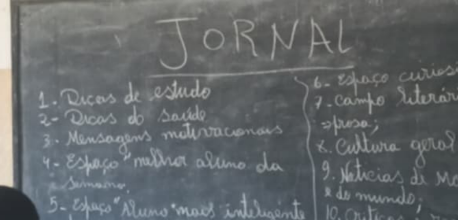 JORNAL
1- Dicas de estudo
2- Dicas de saúde
3- Mensagens motivacionais
4- Espaço "melhor aluno da
semana
5- Espaço "Aluno mais inteligente
6- Espaço
7- Campo
prosa;
8. Cultura geral
9. Notícias de
do mundo;
10.